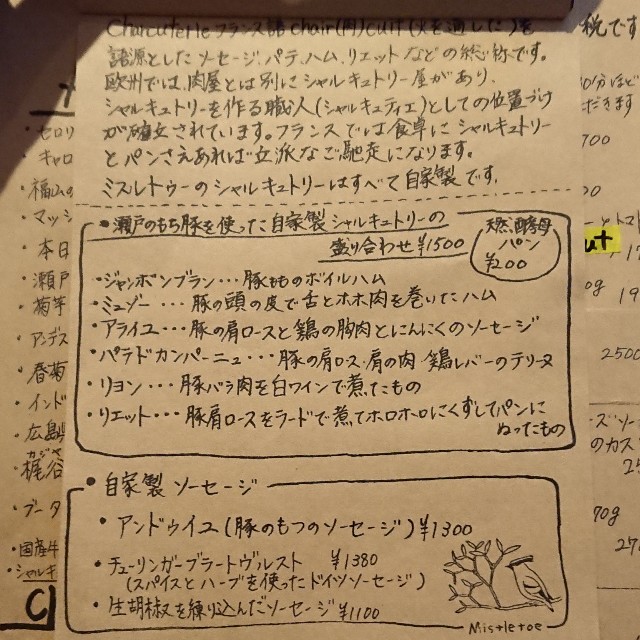 Charcuterie フランス語 chair(肉)cuit(火を通した)を
語源としたソーセージ、パテ、ハム、リエットなどの総称です。
欧州では、肉屋とは別にシャルキュトリー屋があり、
シャルキュトリーを作る職人(シャルキュティエ)としての位置づけ
が確立されています。フランスでは食卓にシャルキュトリー
とパンさえあれば立派なご馳走になります。
ミスルトゥーのシャルキュトリーはすべて自家製です。
・瀬戸のもち豚を使った自家製シャルキュトリーの
盛り合わせ ¥1500
天然酵母
パン
¥200
・ジャンボンブラン・・・豚もものボイルハム
・ミュゾー・・・豚の頭の皮で舌とホホ肉を巻いたハム
・アライユ・・・豚の肩ロースと鶏の胸肉とにんにくのソーセージ
・パテドカンパーニュ・・・豚の肩ロース、肩の肉、鶏レバーのテリーヌ
・リヨン・・・豚バラ肉を白ワインで煮たもの
・リエット・・・豚肩ロースをラードで煮てホロホロにくずしてパンに
ぬったもの
・自家製ソーセージ
・アンドゥイユ(豚のもつのソーセージ)¥1300
・チューリンガーブラートヴルスト ¥1380
(スパイスとハーブを使ったドイツソーセージ)
・生胡椒を練り込んだソーセージ ¥1100
Mistletoe
・セロリ
・キャロ
・福山の
・マッシ
・本日
・瀬戸
・菊芋
・アンデス
・春菊
・インド
・広島
・梶谷
・ブータ
・国産牛
・シャルキ
C
税です
だきます
700
2500
のカス